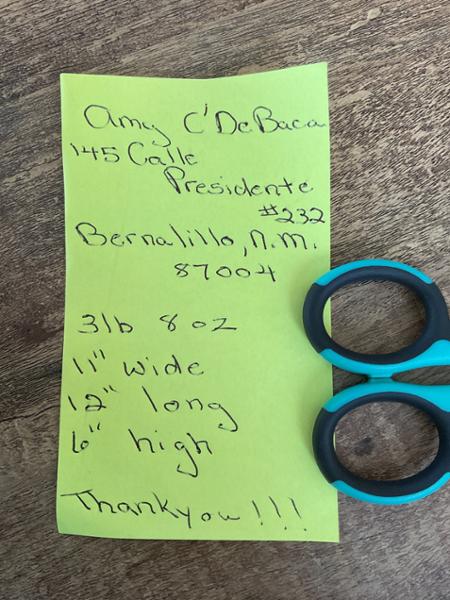 Amy C'DeBaca
145 Calle
Presidente
#232
Bernalillo, n.m.
87004
3lb 8oz
11" wide
12" long
6" high
Thankyou!!!